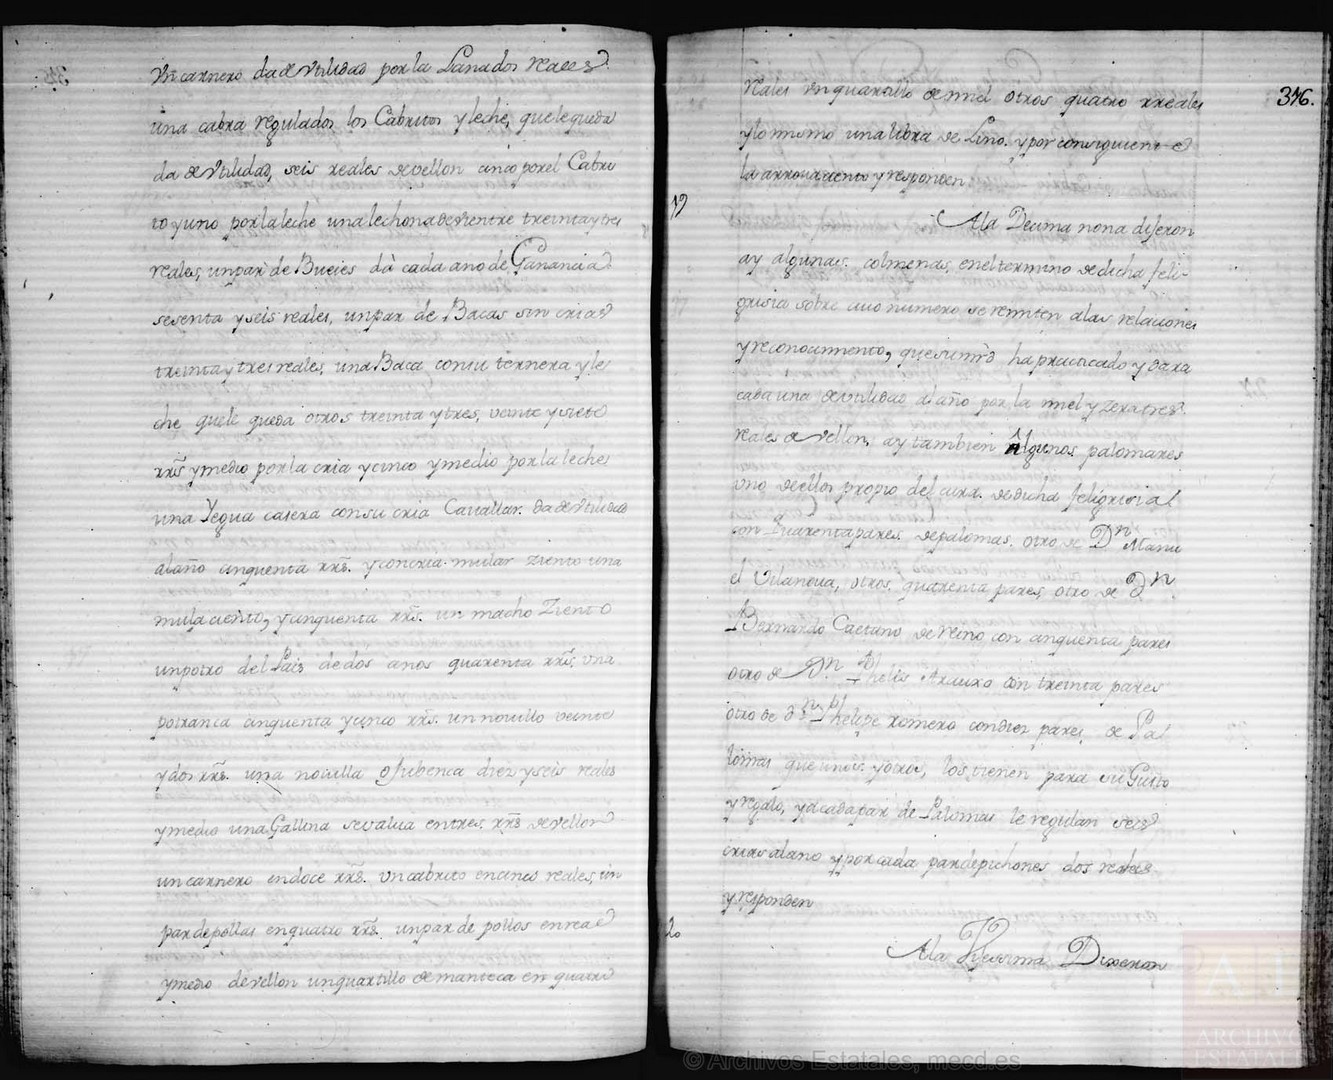 Un carnero da de Utilidad por la Lana dos reales
una cabra regulados los Cabritos y leche, que le queda
da de Utilidad, seis reales de vellon cinco por el Cabri
to y uno por la leche una lechona de vientre treinta y tres
reales, un par de Bueies dà cada año de Ganancia
sesenta y seis reales, un par de Bacas sin crias
treinta y tres reales, una Baca con su ternera y le
che que le queda otros treinta y tres, veinte y siete
rrs y medio por la cria y cinco y medio por la leche
una Yegua casera con su cria Cavallar da de Utilidad
al año cinquenta rrs. y con cria mular Ziento una
mula ciento, y cinquenta rrs. un macho Ziento
un potro del Pais de dos anos quarenta rrs, una
potranca cinquenta y cinco rrs. un novillo veinte
y dos rrs. una novilla o Jubenca diez y seis reales
y medio una Gallina se valua en tres rrs de vellon
un carnero en doce rrs. un cabrito en cinco reales, un
par de pollas en quatro rrs. un par de pollos en real
y medio de vellon un quartillo de manteca en quatro
376.
reales un quartillo de miel otros quatro rreales
y lo mismo una libra de Lino. y por consiguiente
la arrova ciento y responden
19
A la Decima nona dijeron
ay algunas colmenas, en el termino de dicha feli-
gresia sobre cuio numero se remiten a las relaciones
y reconocimiento, que su mrd ha practicado y dara
cada una de utilidad al año por la miel y zera tres
reales de vellon, ay tambien Algunos palomares
uno de ellos propio del cura de dicha feligresia
con quarenta pares de palomas. otro de Dn Manu
el Vilanova, otros quarenta pares, otro de Dn
Bernardo Caetano de Neino con cinquenta pares
otro de Dn Phelis Arauxo con treinta pares
otro de dn Phelipe Romero con diez pares, de Pa
lomas que unos y otros, los tienen para su Gusto
y regalo, y a cada par de Palomas le regulan seis
crias al ano y por cada par de pichones dos reales
y responden
20
A la Vigesima Dixeron
© Archivos Estatales, mecd.es
ARCHIVOS
ESTATALES